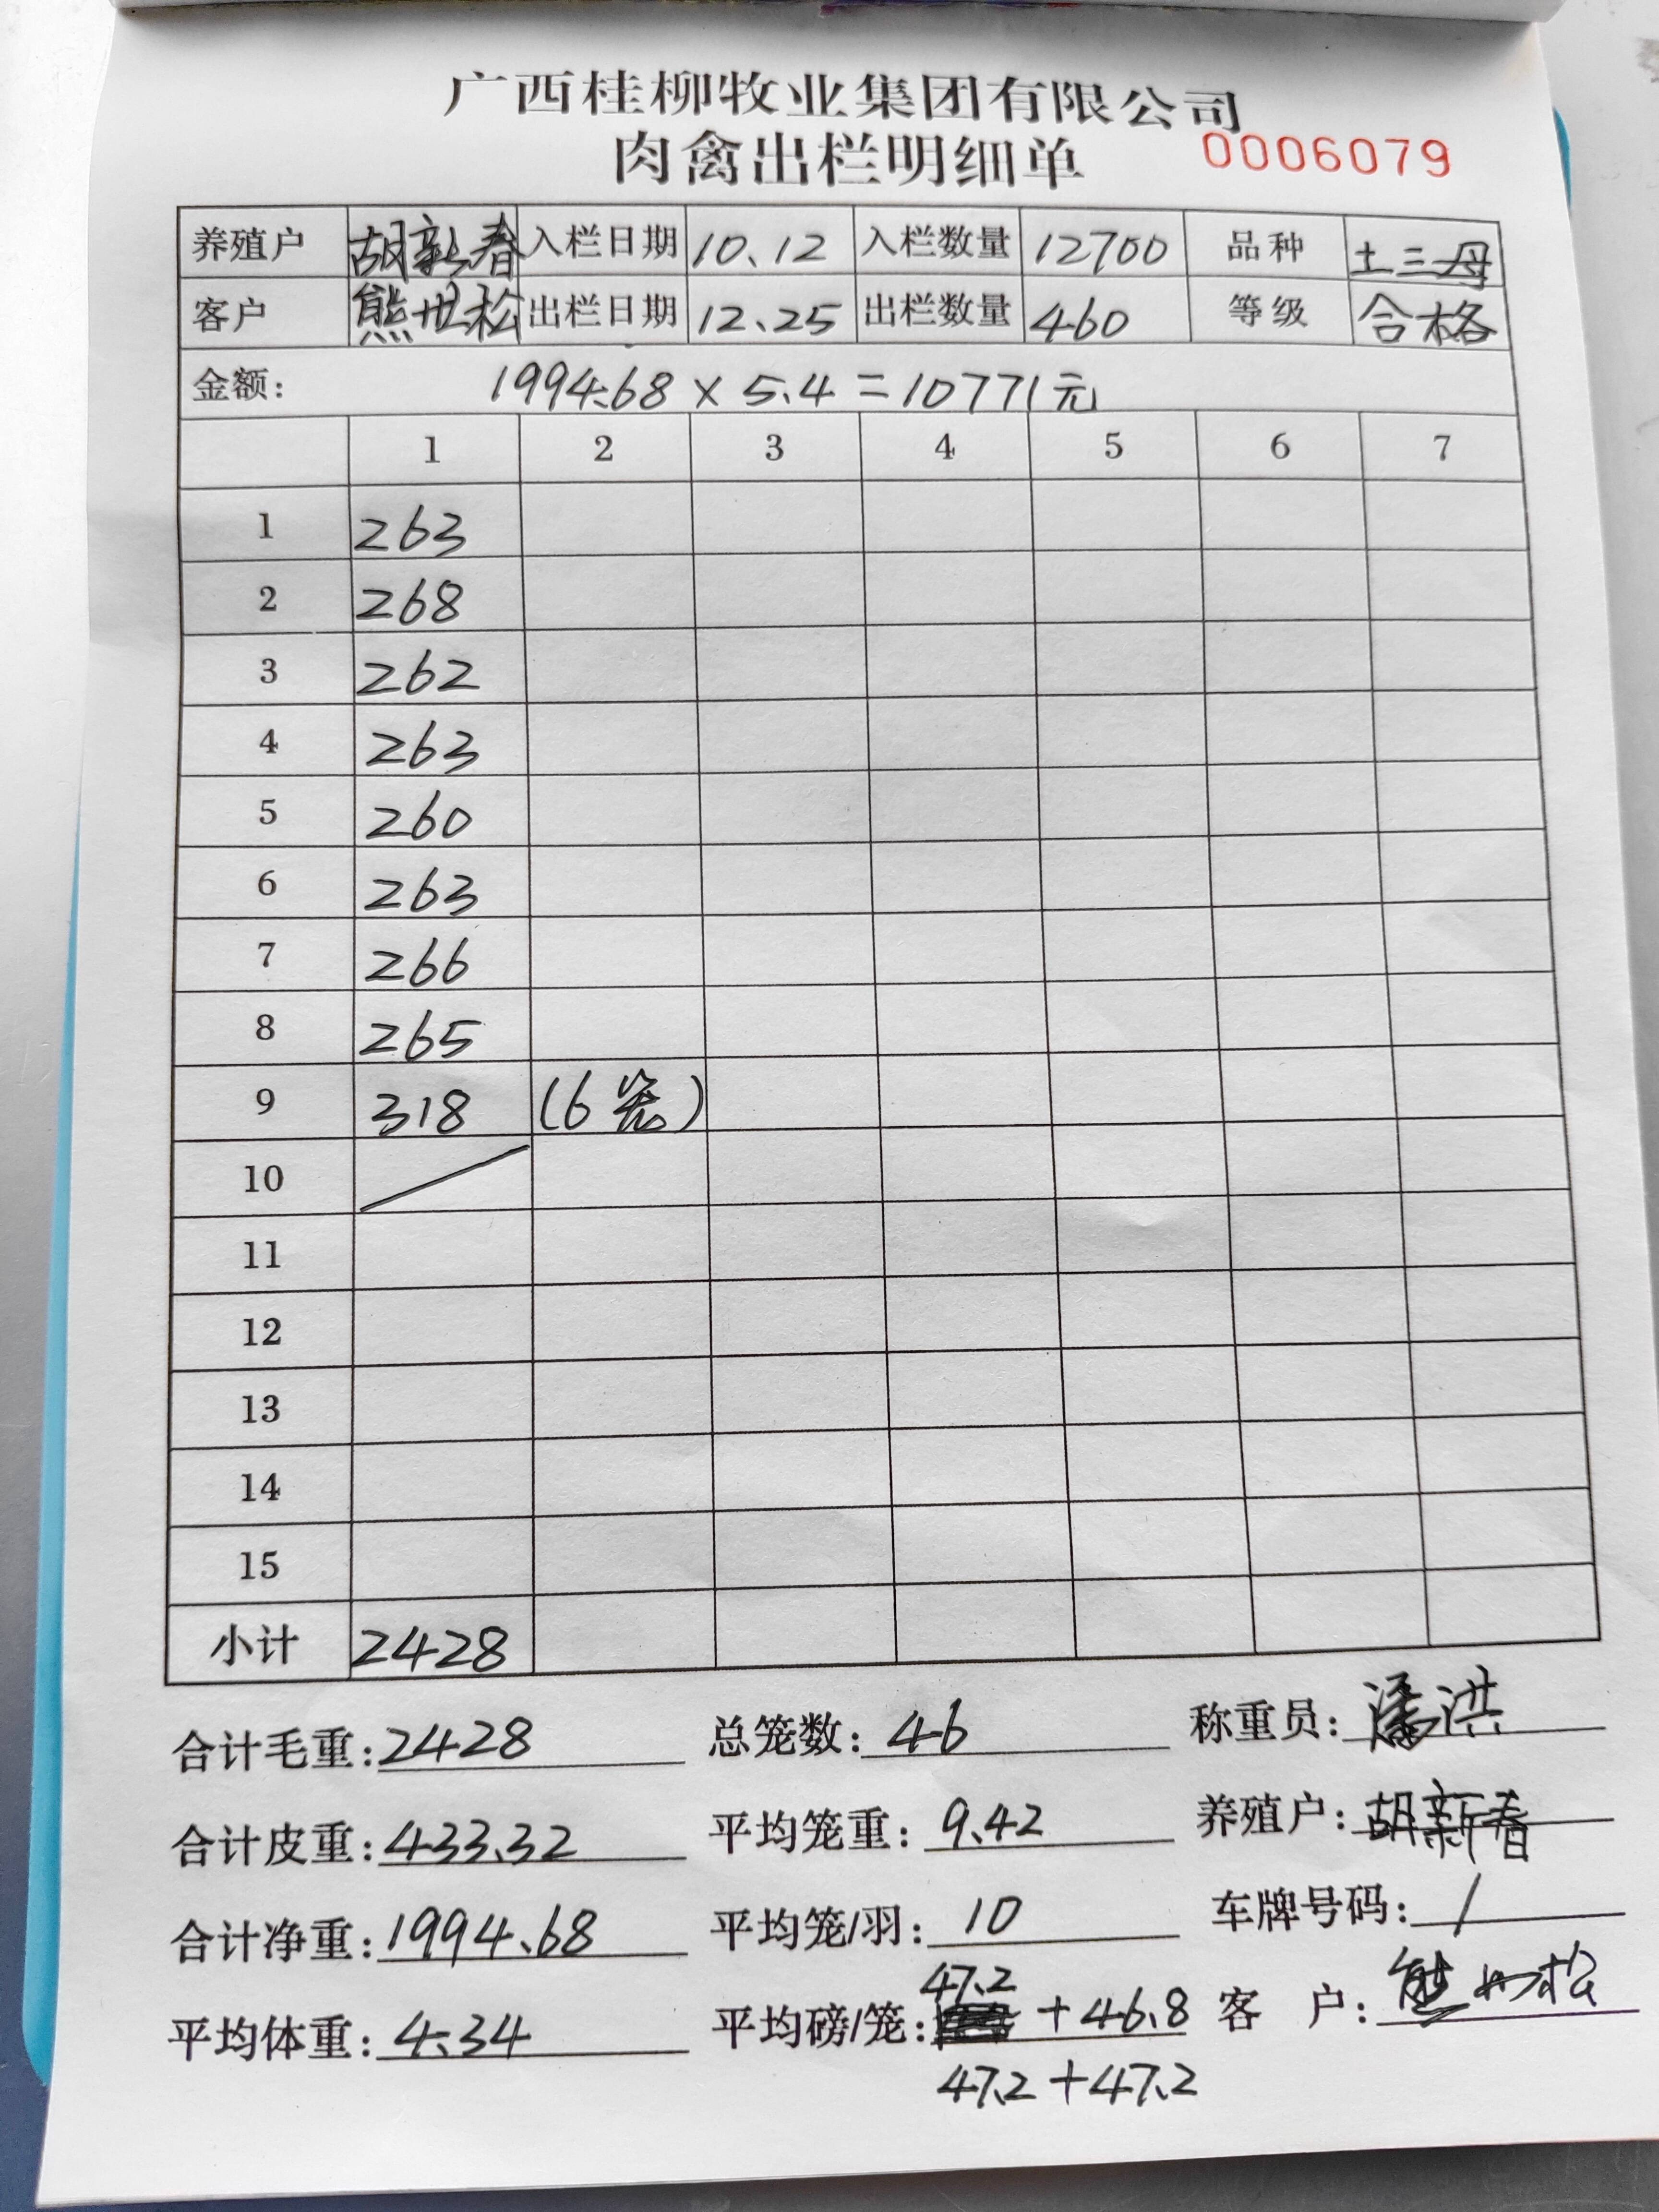 广西桂柳牧业集团有限公司
肉禽出栏明细单 0006079
养殖户 胡新春 入栏日期 10.12 入栏数量 12700 品种 土三母
客户 熊世松 出栏日期 12.25 出栏数量 460 等级 合格
金额: 1994.68 × 5.4 = 10771元
1 2 3 4 5 6 7
1 263
2 268
3 262
4 263
5 260
6 263
7 266
8 265
9 318 (6笼)
10
11
12
13
14
15
小计 2428
合计毛重: 2428 总笼数: 46 称重员: 潘洪
合计皮重: 433.32 平均笼重: 9.42 养殖户: 胡新春
合计净重: 1994.68 平均笼/羽: 10 车牌号码: /
平均体重: 4.34 平均磅/笼: 47.2 + 46.8 客 户: 熊世松
47.2 + 47.2